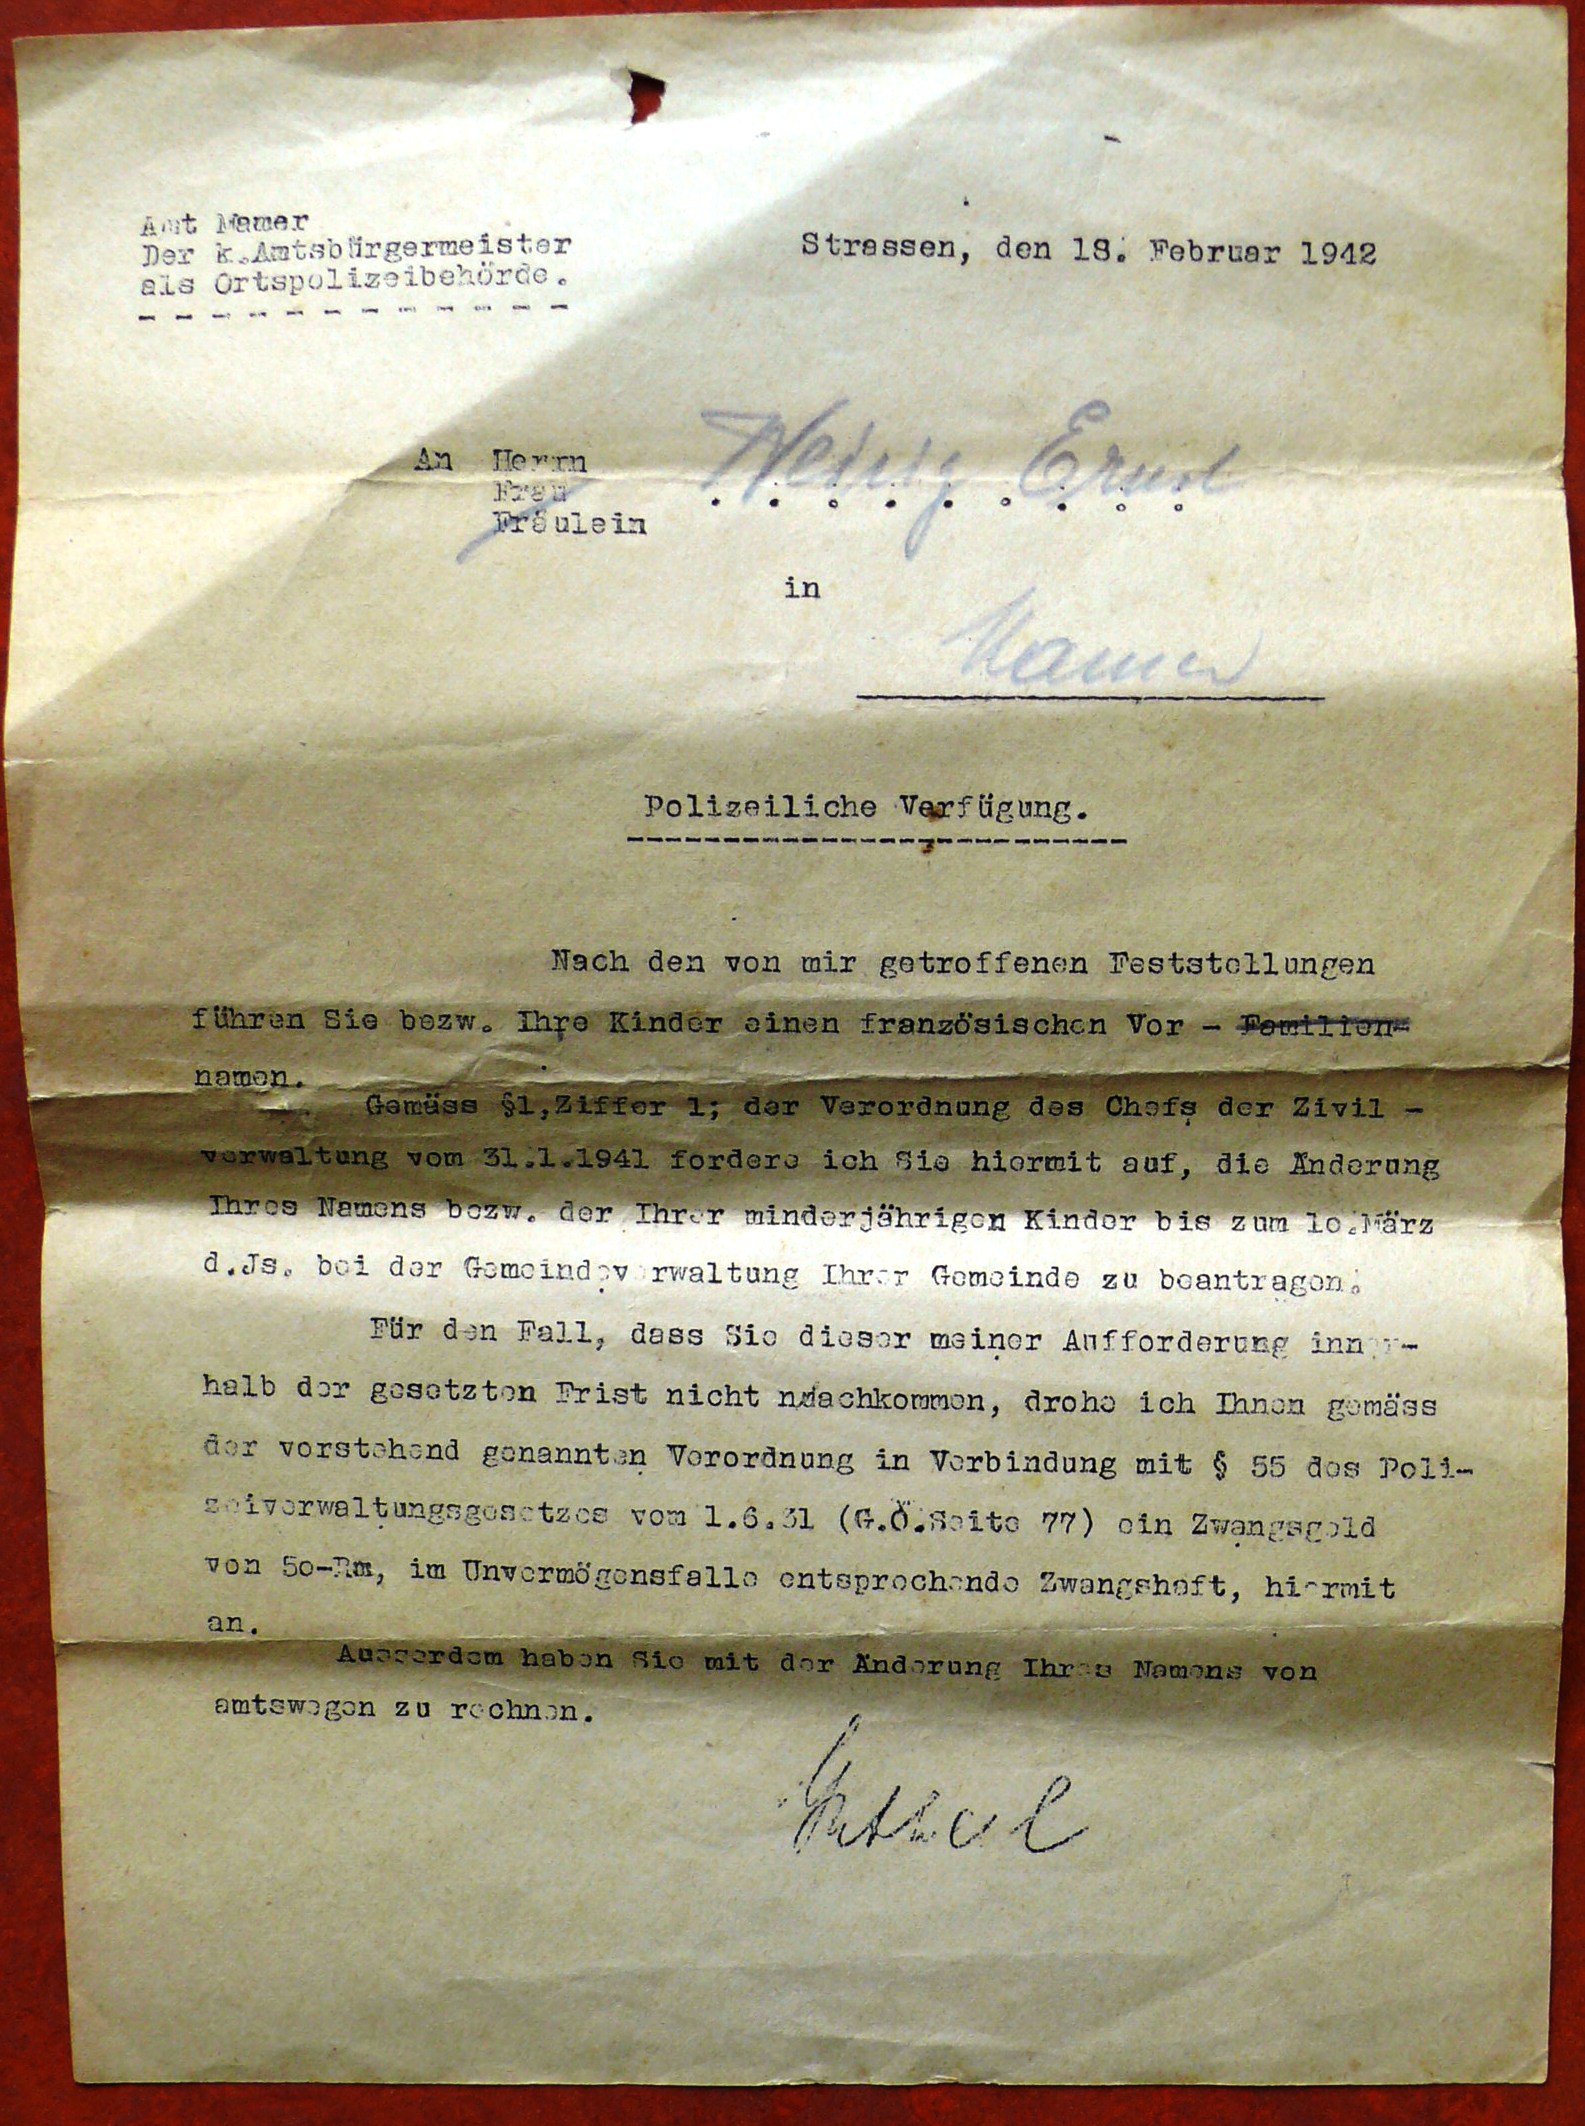 Amt Mamer
Der k.Amtsbürgermeister
als Ortspolizeibehörde.
Strassen, den 18. Februar 1942
An Herrn
Frau
Fräulein
Ernst
in
Mamer
Polizeiliche Verfügung.
Nach den von mir getroffenen Feststellungen
führen Sie bezw. Ihre Kinder einen französischen Vor - Familien-
namen.
Gemäss §1,Ziffer 1; der Verordnung des Chefs der Zivil -
verwaltung vom 31.1.1941 fordere ich Sie hiermit auf, die Änderung
Ihres Namens bezw. der Ihrer minderjährigen Kinder bis zum 10.März
d.Js. bei der Gemeindeverwaltung Ihrer Gemeinde zu beantragen.
Für den Fall, dass Sie dieser meiner Aufforderung inner-
halb der gesetzten Frist nicht nachkommen, drohe ich Ihnen gemäss
der vorstehend genannten Verordnung in Verbindung mit § 55 des Poli-
zeiverwaltungsgesetzes vom 1.6.31 (G.Ö.Seite 77) ein Zwangsgeld
von 50-Rm, im Unvermögensfalle entsprechende Zwangshaft, hiermit
an.
Ausserdem haben Sie mit der Änderung Ihres Namens von
amtswegen zu rechnen.